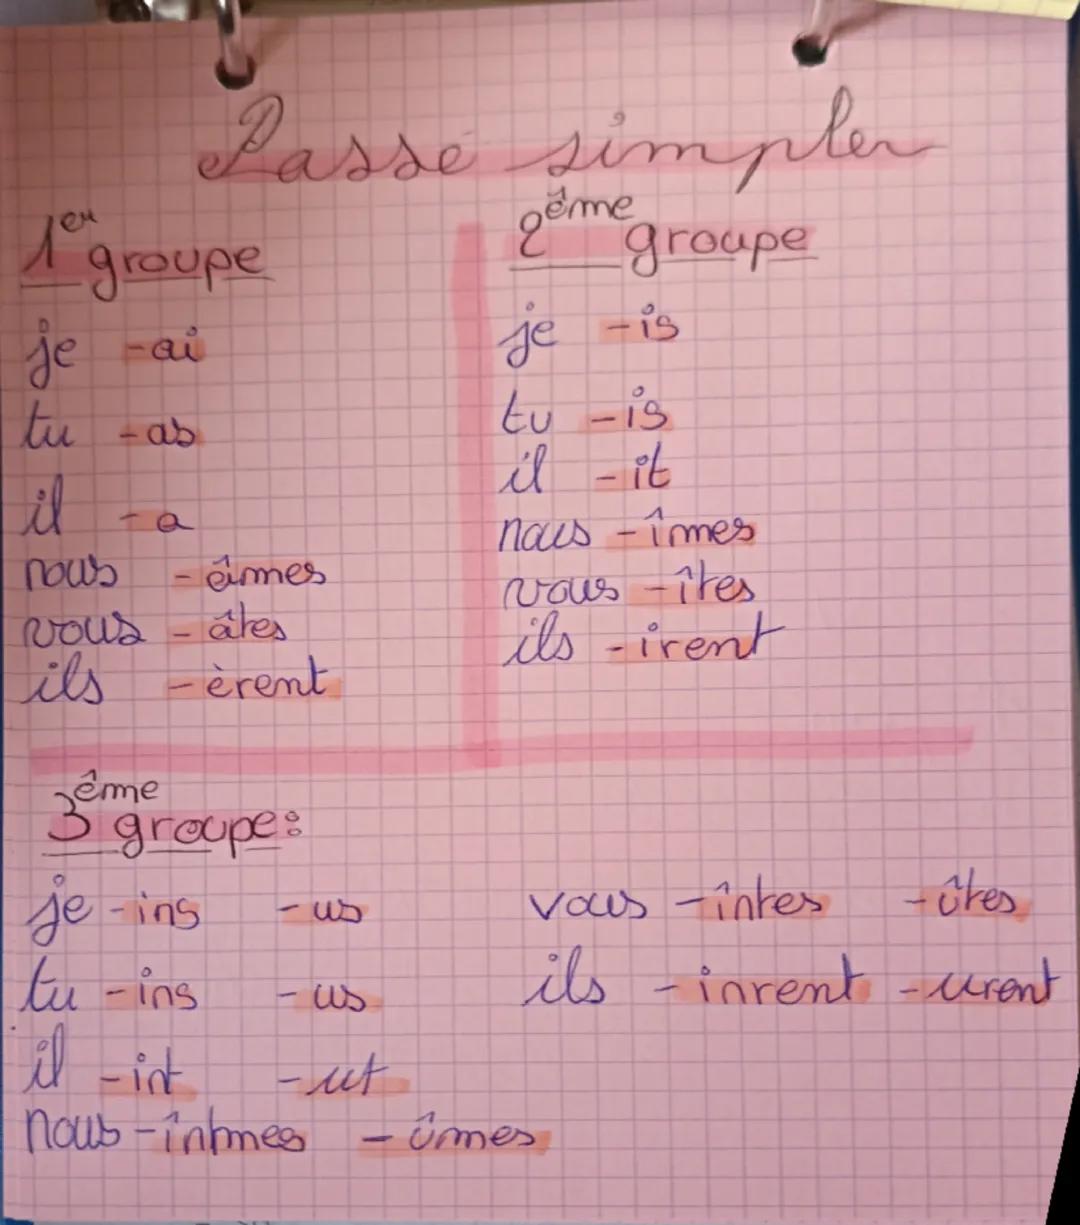 Passé simple
1er groupe
je -ai
tu -as
il -a
nous -âmes
vous -âtes
ils -èrent
2ème groupe
je -is
tu -is
il -it
nous -îmes
vous -îtes
ils -irent
3ème groupe:
je -ins -us
tu -ins -us
il -int -ut
nous -întmes -ûmes
vous -întes -ûtes
ils -inrent -urent